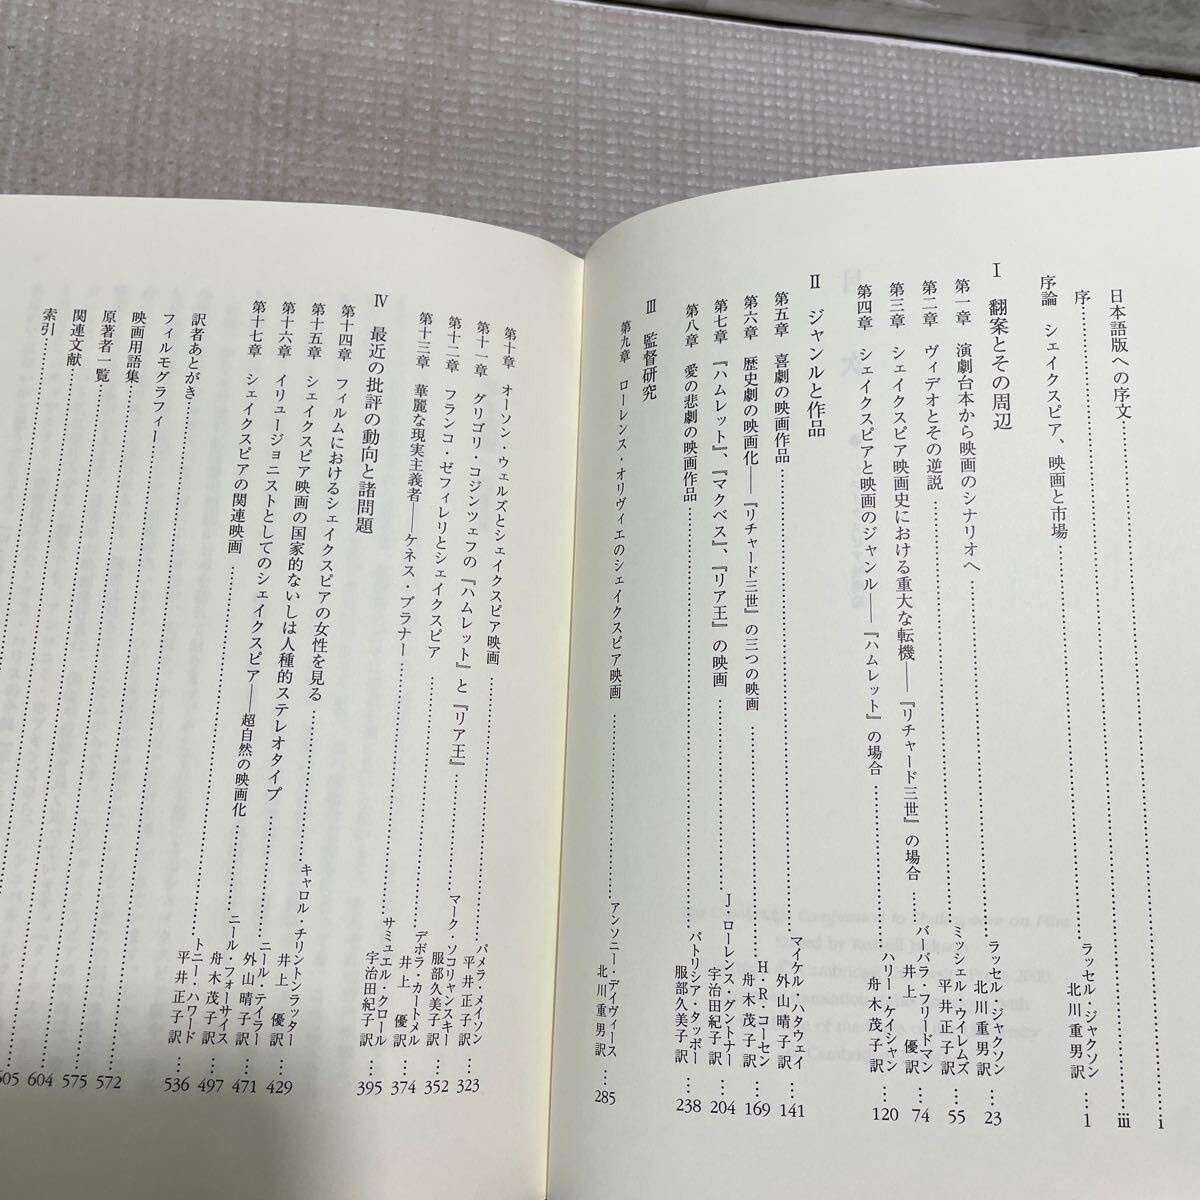 日本語版への序文……i
序……iii
序論 シェイクスピア、映画と市場……ラッセル・ジャクソン 北川重男訳 1
Ⅰ 翻案とその周辺
第一章 演劇台本から映画のシナリオへ……ラッセル・ジャクソン 北川重男訳…23
第二章 ヴィデオとその逆説……ミッシェル・ウイレムズ 平井正子訳…55
第三章 シェイクスピア映画史における重大な転機——『リチャード三世』の場合……バーバラ・フリードマン 井上 優訳…74
第四章 シェイクスピアと映画のジャンル——『ハムレット』の場合……ハリー・ケイシャン 舟木茂子訳…120
Ⅱ ジャンルと作品
第五章 喜劇の映画作品……マイケル・ハタウェイ 外山晴子訳…141
第六章 歴史劇の映画化——『リチャード三世』の三つの映画……H・R・コーセン 舟木茂子訳…169
第七章 『ハムレット』、『マクベス』、『リア王』の映画……J・ローレンス・グントナー 宇治田紀子訳…204
第八章 愛の悲劇の映画作品……パトリシア・タッボー 服部久美子訳…238
Ⅲ 監督研究
第九章 ローレンス・オリヴィエのシェイクスピア映画……アンソニー・デイヴィース 北川重男訳…285
第十章 オーソン・ウェルズとシェイクスピア映画……パメラ・メイソン 平井正子訳…323
第十一章 グリゴリ・コジンツェフの『ハムレット』と『リア王』……マーク・ソコリャンスキー 服部久美子訳…352
第十二章 フランコ・ゼフィレリとシェイクスピア……デボラ・カートメル 井上 優訳…374
第十三章 華麗な現実主義者——ケネス・ブラナー……サミュエル・クロール 宇治田紀子訳…395
Ⅳ 最近の批評の動向と諸問題
第十四章 フィルムにおけるシェイクスピアの女性を見る……キャロル・チリントンラッター 井上 優訳…429
第十五章 シェイクスピア映画の国家的ないしは人種的ステレオタイプ……ニール・テイラー 外山晴子訳…471
第十六章 イリュージョニストとしてのシェイクスピア——超自然の映画化……ニール・フォーサイス 舟木茂子訳…497
第十七章 シェイクスピアの関連映画……トニー・ハワード 平井正子訳…536
訳者あとがき……572
フィルモグラフィー……575
映画用語集……604
原著者一覧……605
関連文献……
索引……